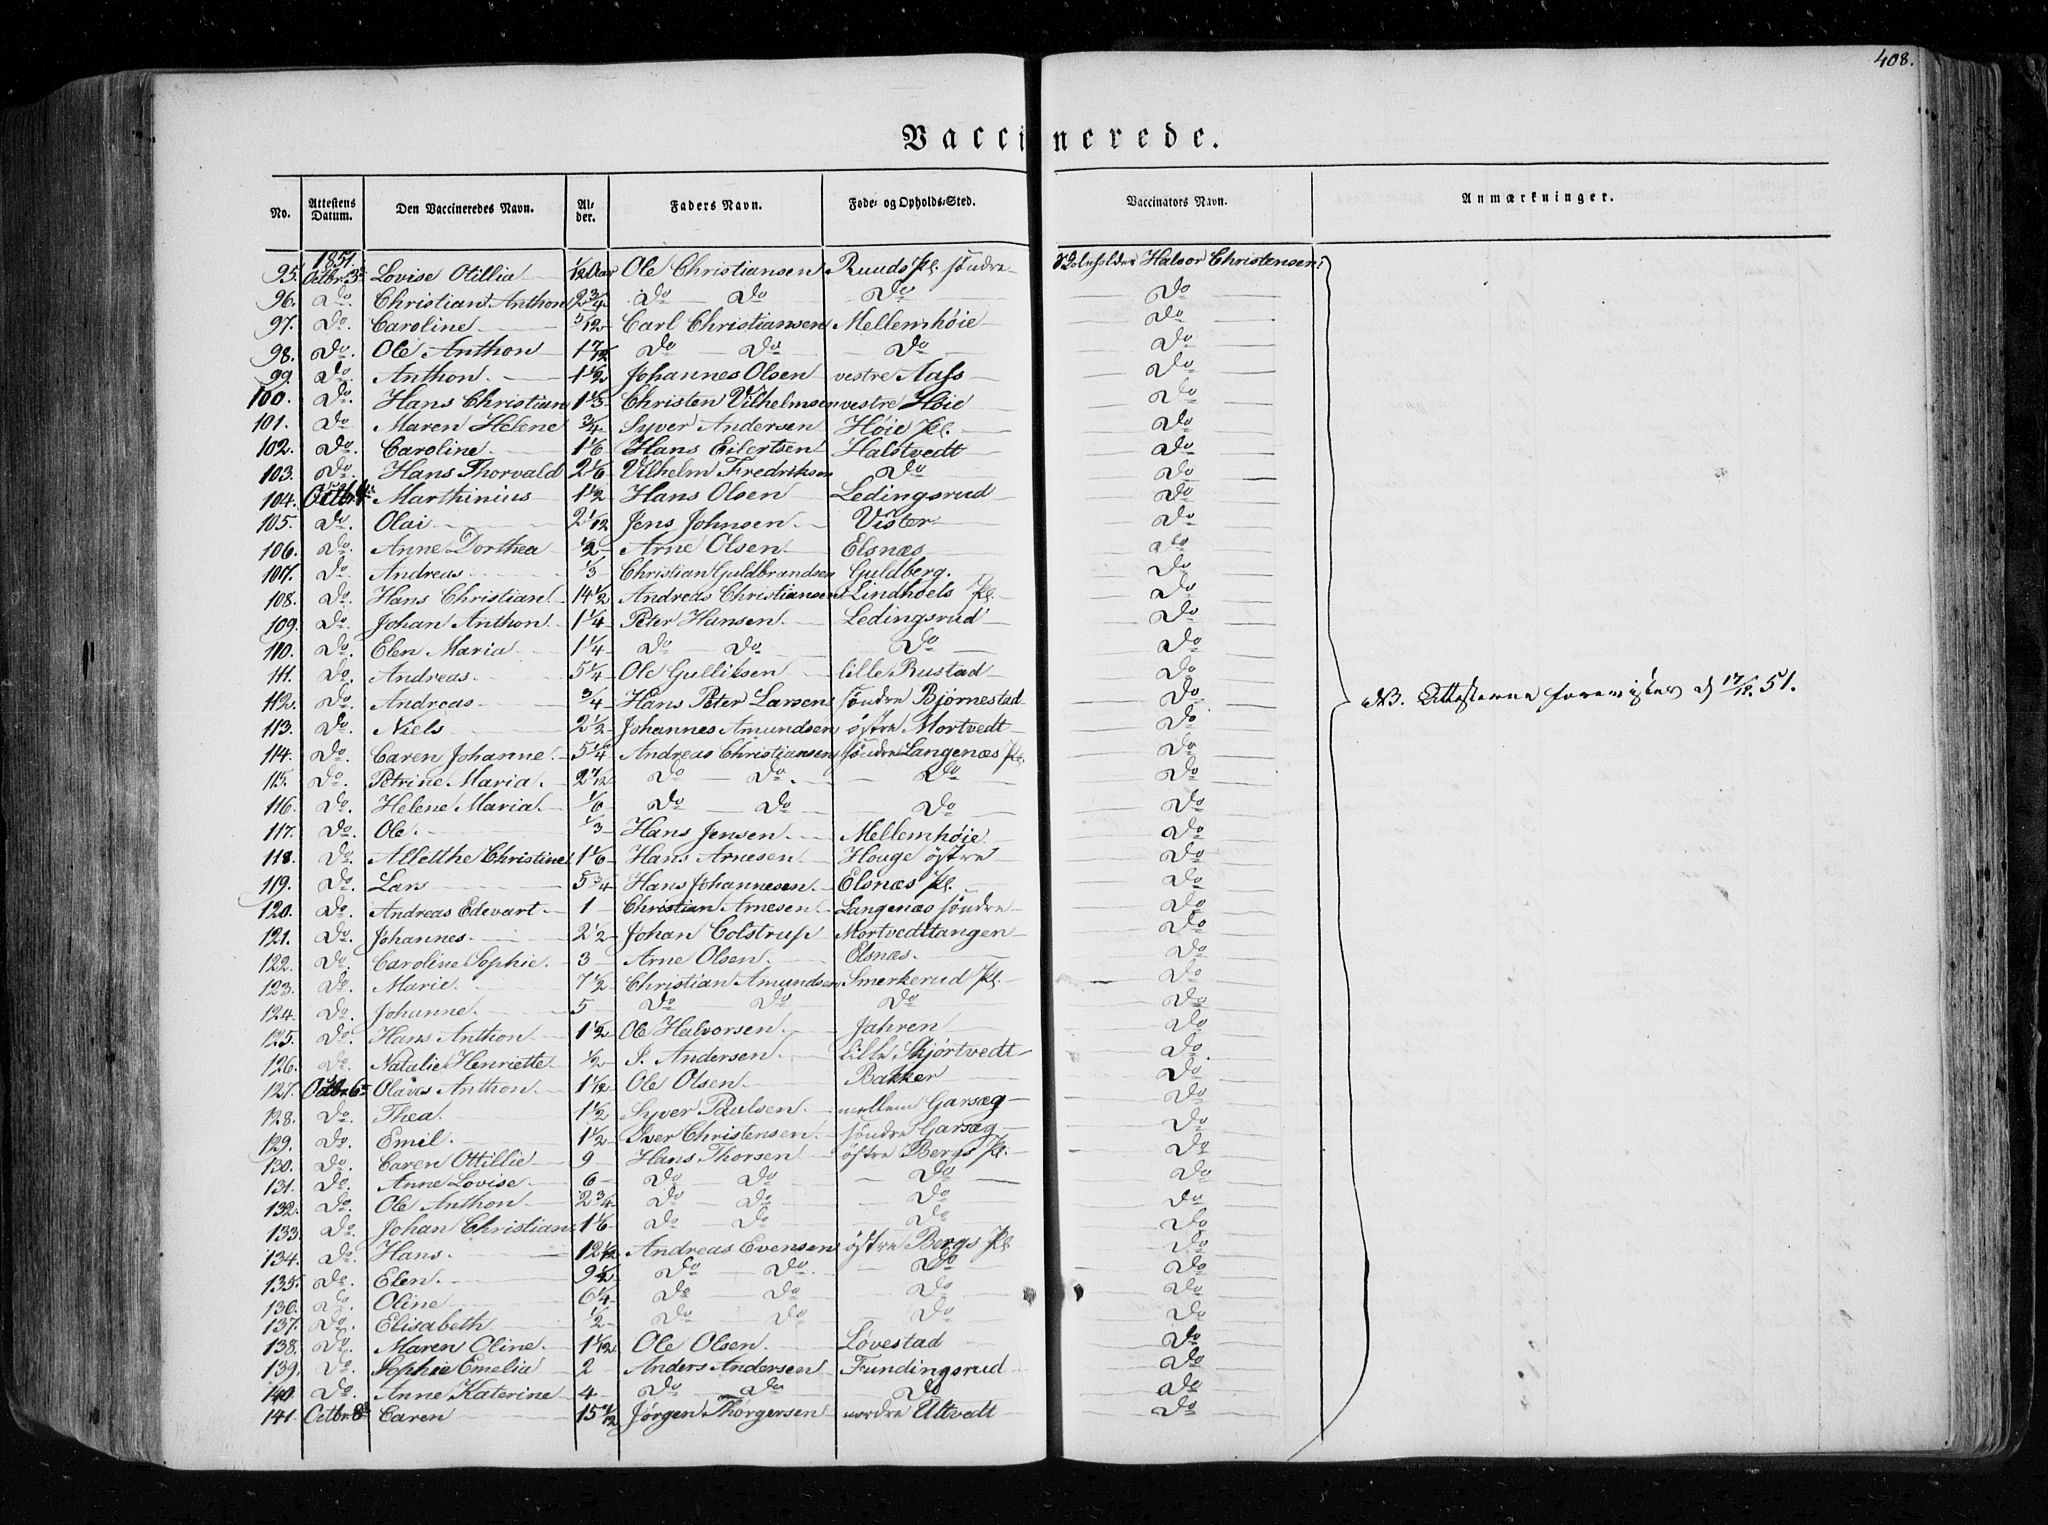 408.
Vaccinerede.
No. Attestens Datum. Den Vaccineredes Navn. Alder. Faders Navn. Føde- og Opholds-Sted. Vaccinators Navn. Anmærkninger.
1851.
95. Octbr. 3 Lovise Otillia 1/12 Aar Ole Christiansen Ruuds Pl. søndre Halvor Christensen
96. Do Christian Anthon 2 3/4 Do Do Do Do
97. Do Caroline 5/12 Carl Christiansen Mellemhöie Do
98. Do Ole Anthon 1 7/12 Do Do Do Do
99. Do Anthon 1 1/2 Johannes Olsen vestre Aass Do
100. Do Hans Christian 1 1/3 Christen Vilhelmsen vestre Höie Do
101. Do Maren Helene 3/4 Syver Andersen Höie Pl. Do
102. Do Caroline 1 1/6 Hans Eilertsen Halstvedt Do
103. Do Hans Thorvald 2 1/6 Vilhelm Fredriksen Do Do
104. Octbr. 4 Marthinius 1 1/2 Hans Olsen Ledingsrud Do
105. Do Olai 2 1/12 Jens Johnsen Vister Do
106. Do Anne Dorthea 1/2 Arne Olsen Elsnæs Do
107. Do Andreas 1/3 Christian Guldbrandsen Guldberg. Do
108. Do Hans Christian 14 1/2 Andreas Christiansen Lindhoels Pl. Do
109. Do Johan Anthon 1 1/4 Peter Hansen Ledingsrud Do
110. Do Elen Maria 1 1/4 Do Do Do Do
111. Do Andreas 5 1/4 Ole Gulliksen lille Rustad Do
112. Do Andreas 3/4 Hans Peter Larsen søndre Bjørnestad Do NB. Attesterne 17/12 51.
113. Do Niels 2 1/2 Johannes Amundsen östre Mortvedt Do
114. Do Caren Johanne 5 1/4 Andreas Christiansen søndre Langenæs Pl. Do
115. Do Petrine Maria 2 7/12 Do Do Do Do
116. Do Helene Maria 1/6 Do Do Do Do
117. Do Ole 1/3 Hans Jensen Mellemhöie Do
118. Do Alletthe Christine 1 1/6 Hans Arnesen Houge östre Do
119. Do Lars 5 3/4 Hans Johannesen Elsnæs Pl. Do
120. Do Andreas Edevart 1 Christian Arnesen Langenæs søndre Do
121. Do Johannes 2 1/2 Johan Colstrup Mortvedttangen Do
122. Do Caroline Sophie 3 Arne Olsen Elsnæs. Do
123. Do Marie 7 1/2 Christian Amundsen Smerkerud Pl. Do
124. Do Johanne 5 Do Do Do Do
125. Do Hans Anthon 1 1/2 Ole Halvorsen Jahren Do
126. Do Natalie Henriette 1/2 J. Andersen lille Skjørtvedt Do
127. Octbr. 6 Olaves Anthon 1 1/12 Ole Olsen Bakker Do
128. Do Thea 1 1/2 Syver Paulsen mellem Garsæg Do
129. Do Emil 1 1/2 Iver Christensen søndre Garsæg Do
130. Do Caren Ottillie 9 Hans Thorsen östre Bergs Pl. Do
131. Do Anne Lovise 6 Do Do Do Do
132. Do Ole Anthon 2 3/4 Do Do Do Do
133. Do Johan Christian 1 1/6 Do Do Do Do
134. Do Hans 12 1/2 Andreas Evensen östre Bergs Pl. Do
135. Do Elen 9 1/2 Do Do Do Do
136. Do Oline 6 1/4 Do Do Do Do
137. Do Elisabeth 1/2 Do Do Do Do
138. Do Maren Oline 1 1/12 Ole Olsen Løvestad Do
139. Do Sophie Emelia 2 Anders Andersen Fundingsrud Do
140. Do Anne Katerine 4 Do Do Do Do
141. Octbr. 8 Caren 15 Jørgen Thorgersen nordre Altvedt Do